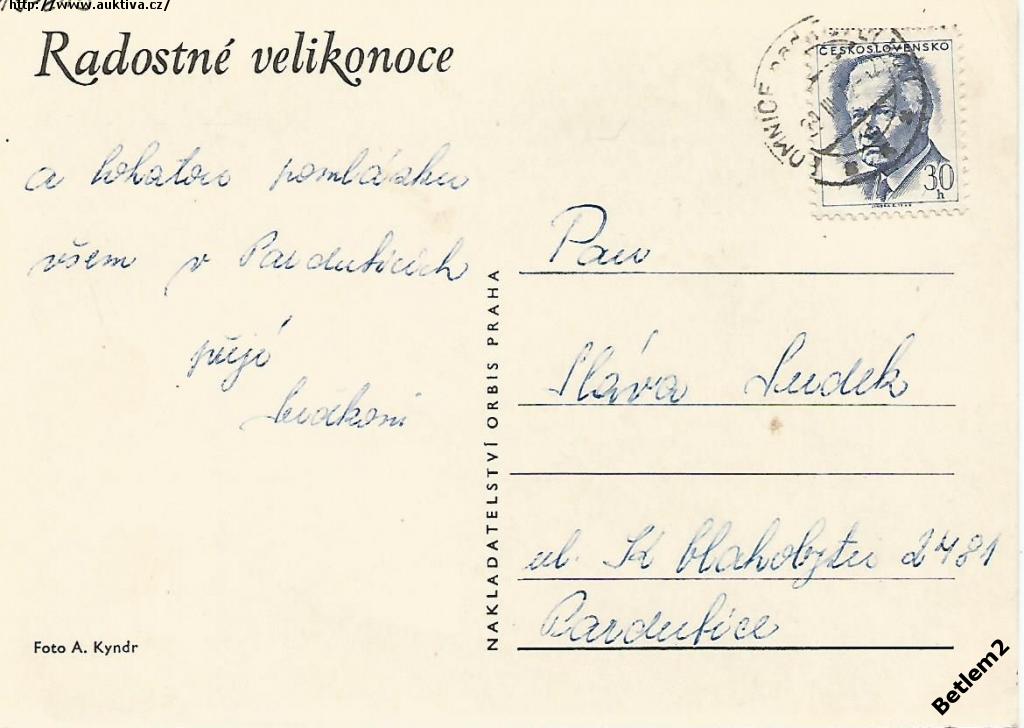 http://www.auktiva.cz/
Radostné velikonoce
a bohatou pomlázku
všem v Pardubicích
přejí
ČESKOSLOVENSKO
30
h
LOMNICE
III
NAKLADATELSTVÍ ORBIS PRAHA
Pan
Sláva Ludek
ul. K blahobytu 2481
Pardubice
Foto A. Kyndr
Betlem2